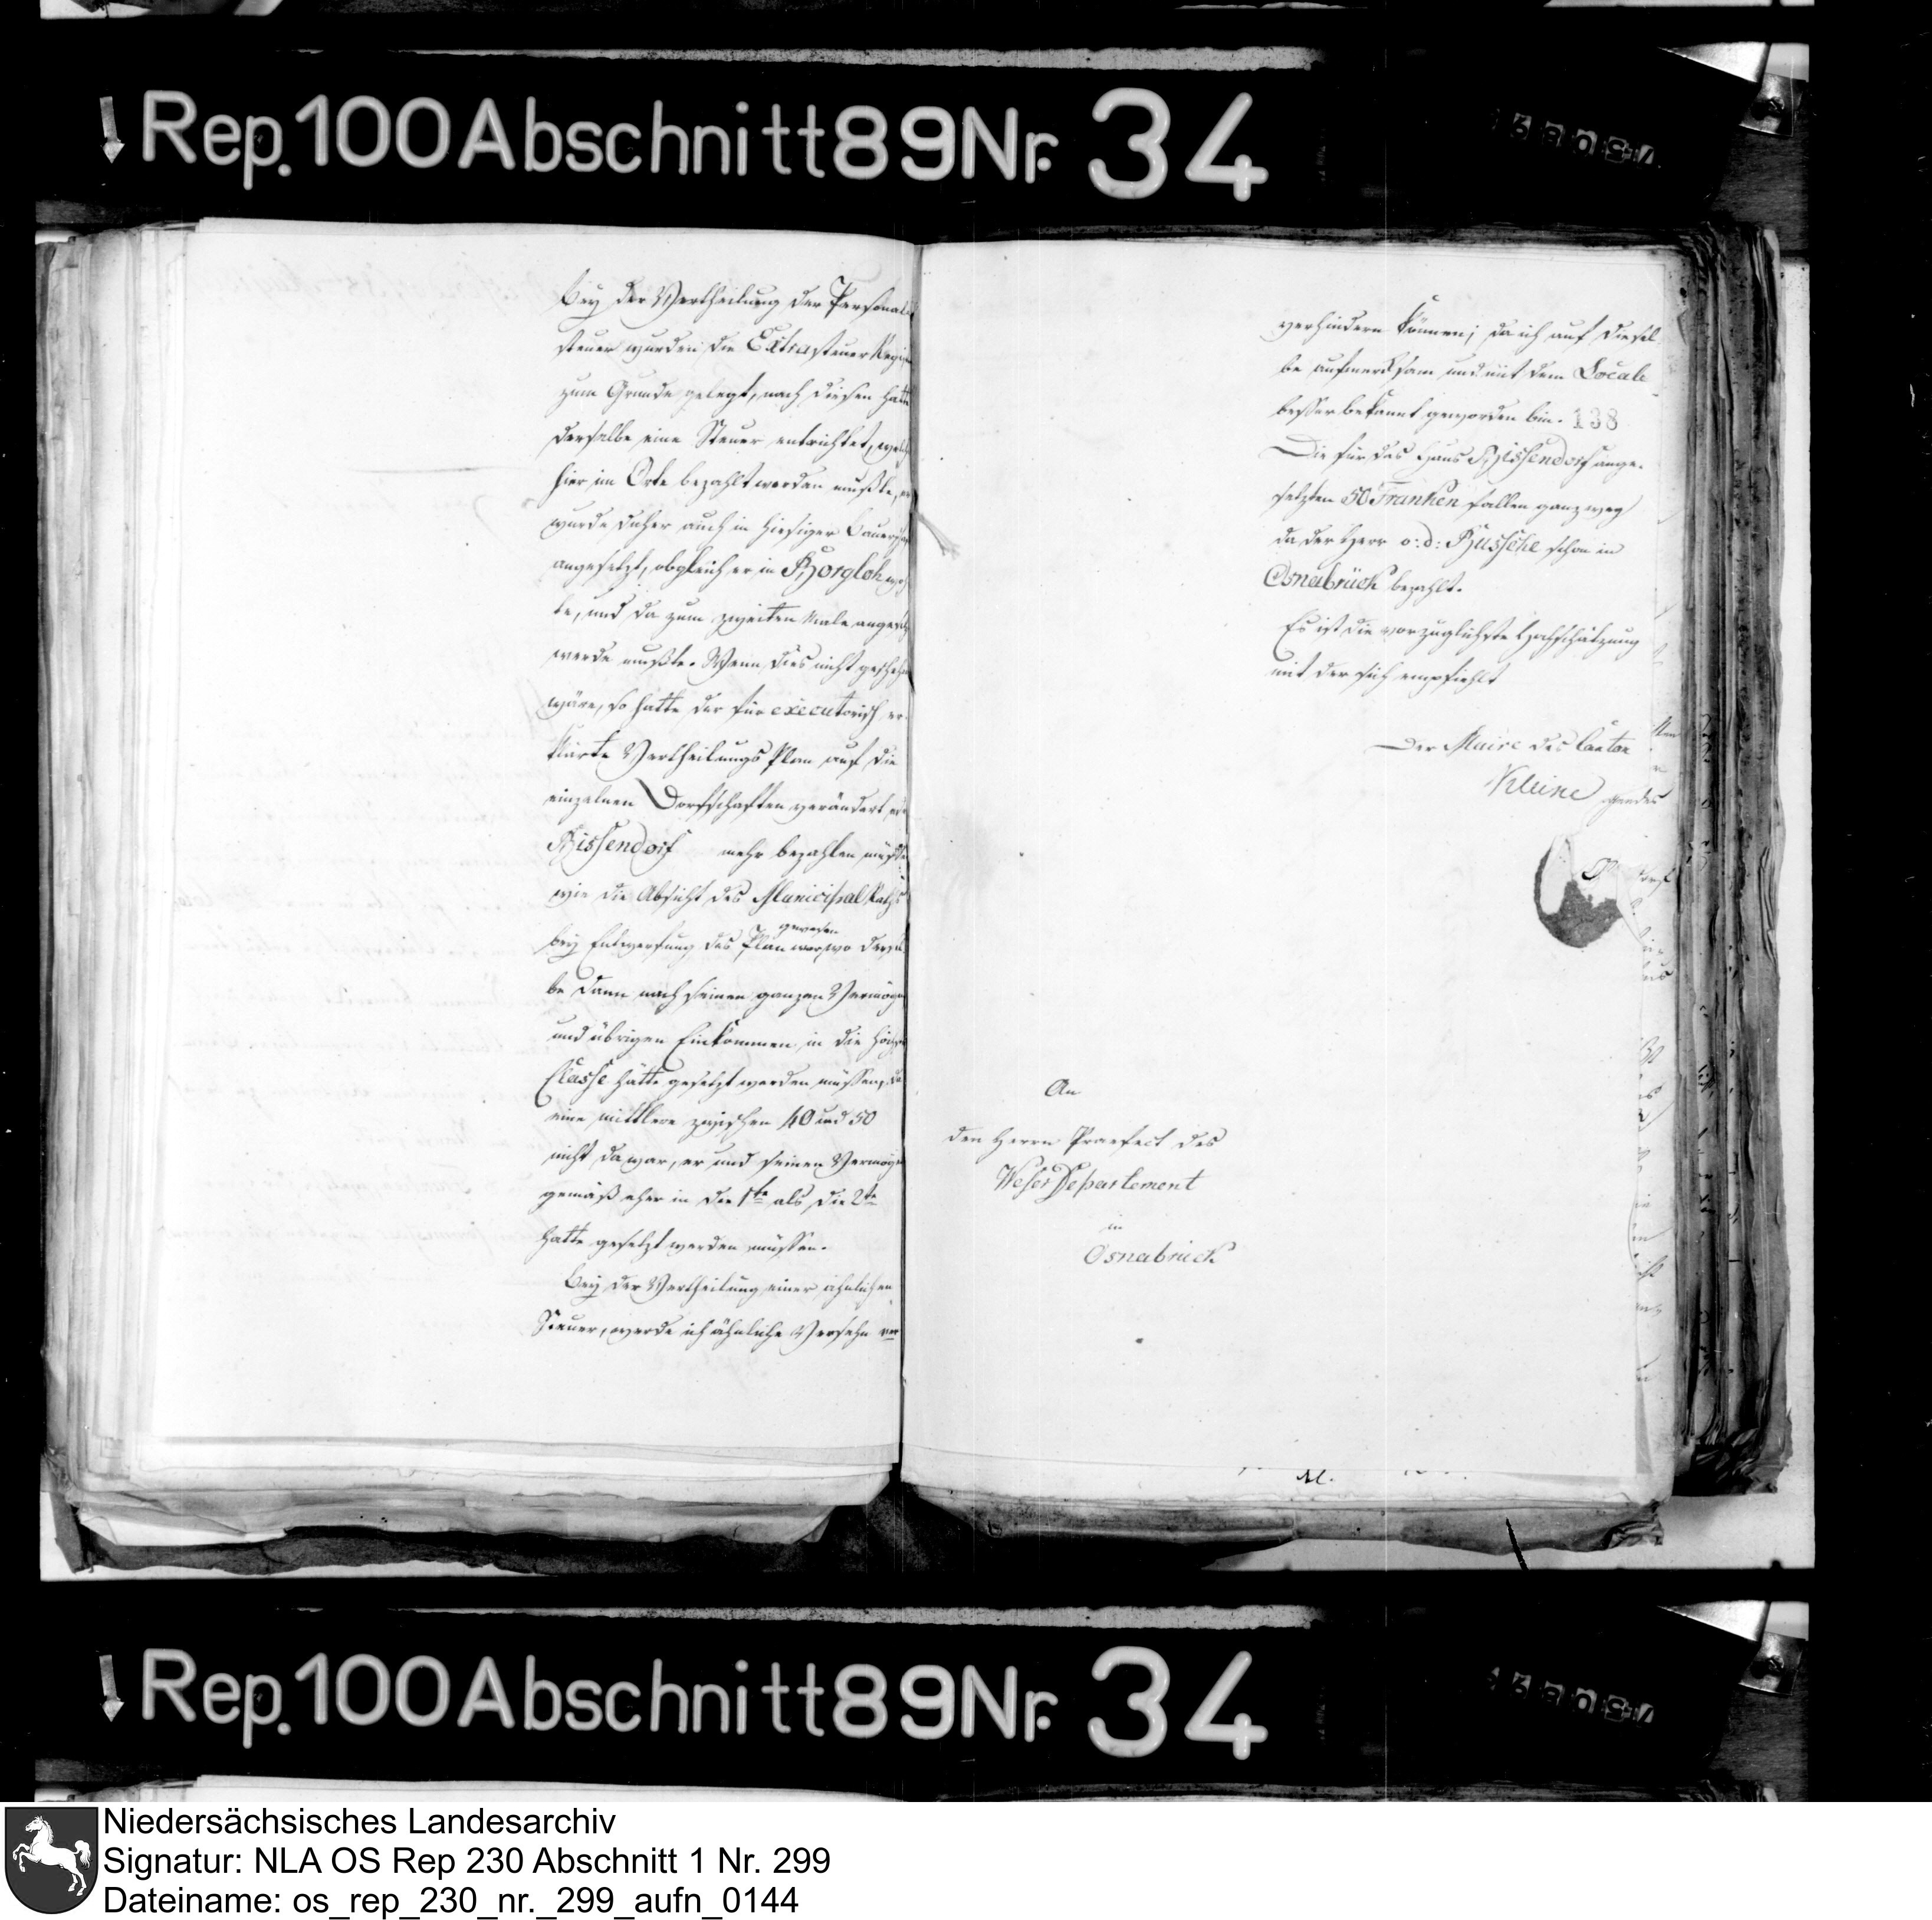 Rep. 100 Abschnitt 89 Nr. 34
Bey der Vertheilung der Personal
steuer wurden die Extrasteuer Regis
zum Grunde gelegt, nach diesen hatte
derselbe eine Steuer entrichtet, welche
hier im Orte bezahlt werden mußte, er
wurde daher auch in hiesiger Bauersch
angesetzt, obgleich er in Borgloh woh
te, und da zum zweiten Male angesetzt
werde mußte. Wenn dies nicht geschehen
wäre, so hatte der für executorisch er-
klärte Vertheilungs Plan auf die
einzelnen Dorfschaften verändert
Bissendorf mehr bezahlen müssen
wie die Absicht des Municipal Raths
gewesen
bey Entwerfung des Plan war, wo dersel
be dann nach seinen ganzen Vermögen
und übrigen Einkommen in die höchste
Classe hätte gesetzt werden müssen, da
eine mittlere zwischen 40 und 50
nicht da war, er und seinen Vermögen
gemäß eher in die 1te als die 2te
hatte gesetzt werden müssen.
Bey der Vertheilung einer ähnlichen
Steuer, werde ich ähnliche Versehn ver
verhindern können; da ich auf diesel
be aufmerksam und mit dem Locale
besser bekannt geworden bin.
138
Die für das Haus Bissendorf ange-
setzten 50 Franken fallen ganz weg
da der Herr v: d: Bussche schon in
Osnabrück bezahlt.
Es ist die vorzüglichste Hochschätzung
mit der sich empfiehlt
Der Maire des Canton
Kleine
An
den Herrn Praefect des
Weser Departement
in
Osnabrück
Rep. 100 Abschnitt 89 Nr. 34
Niedersächsisches Landesarchiv
Signatur: NLA OS Rep 230 Abschnitt 1 Nr. 299
Dateiname: os_rep_230_nr._299_aufn_0144